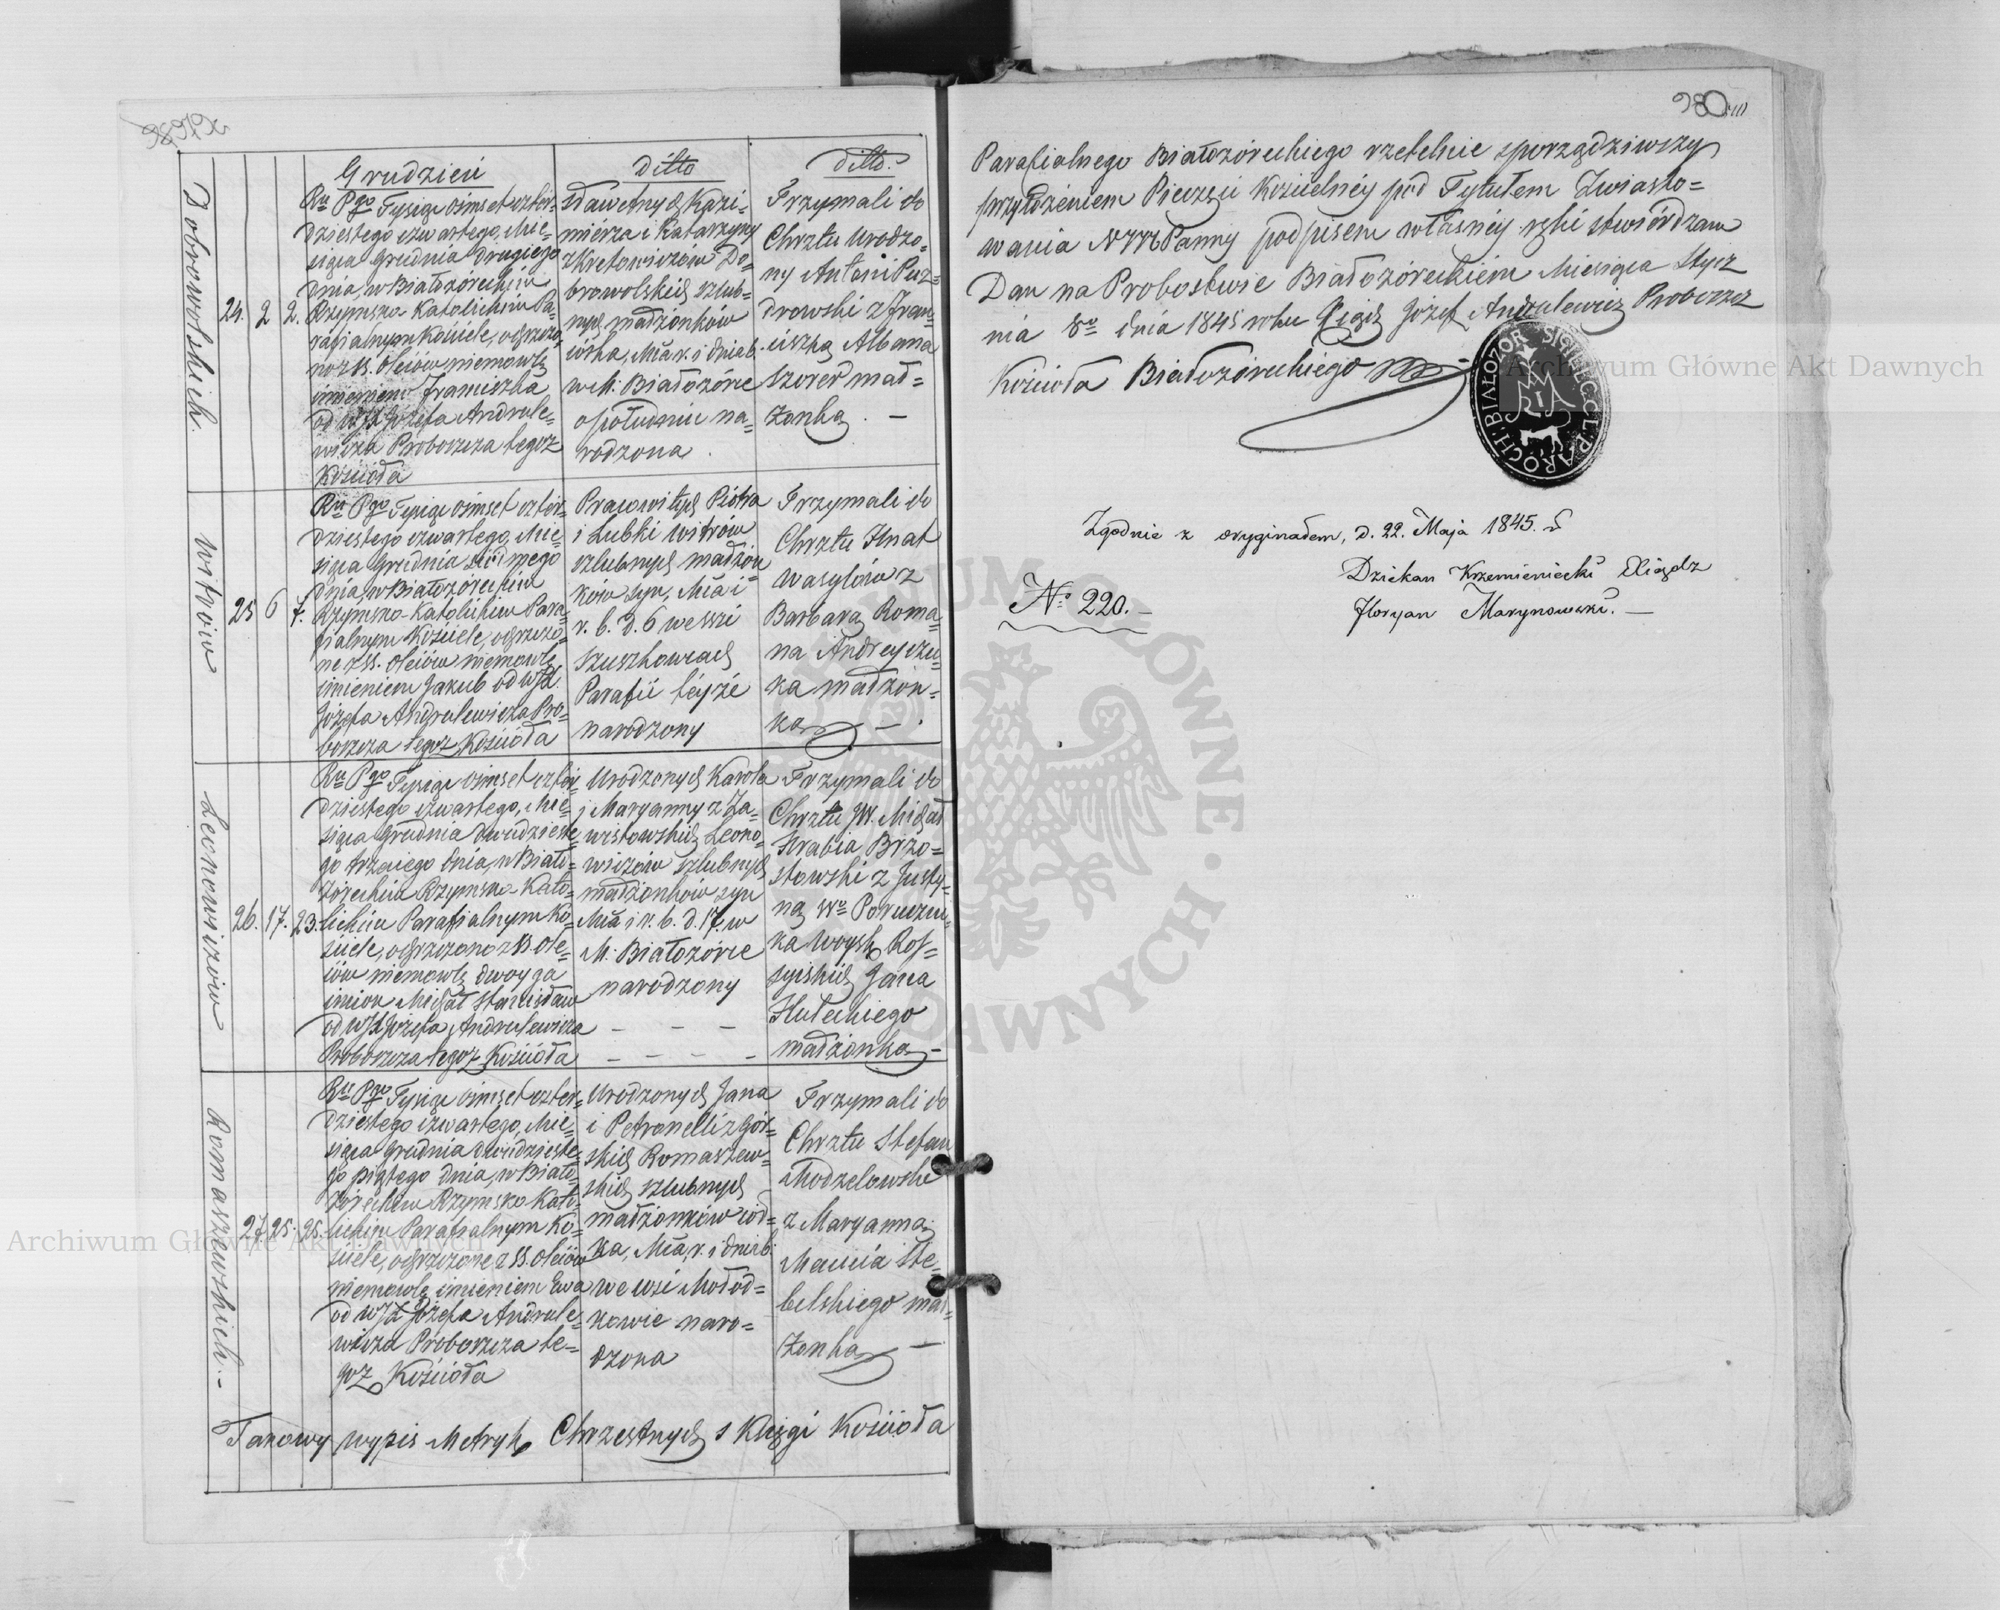 Grudzień
ditto
ditto.
Dobrowolskich.
24. 2 2.
Ru Pgo Tysiąc ośmset czter=
dziestego czwartego, Mie=
siąca Grudnia drugiego
dnia, w Białozóreckim
Rzymsko Katolickim Pa=
rafialnym Kościele, ochrzczo=
no z SS. Olejów niemowlę
imieniem Franciszka
od WJX Józefa Andrule=
wicza Proboszcza tegoż
Kościoła
Sławetnych Kazi=
mierza i Katarzyny
z Kretowiczów Do=
browolskich szlub=
nych małżonków
córka, Mca r. i dnia b.
w M. Białozórce
o południu na=
rodzona.
Trzymali do
Chrztu Urodzo=
ny Antoni Puz=
drowski z Fran=
ciszką Albana
Szorer mał=
żonką. —
Witrów
25 6 7.
Ru Pgo Tysiąc ośmset czter=
dziestego czwartego, Mie=
siąca Grudnia siódmego
dnia, w Białozóreckim
Rzymsko-Katolickim Para=
fialnym Kościele, ochrzczo=
ne z SS. Olejów niemowlę
imieniem Jakub od WJX.
Józefa Andrulewicza Pro=
boszcza tegoż Kościoła
Pracowitych Piotra
i Lubki Witrów
szlubnych małżon=
ków syn, Mca i
r. b. d. 6 we wsi
Szuszkowcach
Parafii tejże
narodzony
Trzymali do
Chrztu Ihnat
Wasylów z
Barbarą Roma=
na Andrejczu=
ka małżon=
ką — .
Lechowiczów
26. 17. 23.
Ru Pgo Tysiąc ośmset czter=
dziestego czwartego, Mie=
siąca Grudnia dwudzieste=
go trzeciego dnia, w Biało=
zóreckim Rzymsko-Kato=
lickim Parafialnym Ko=
ściele, ochrzczono z SS Ole=
jów niemowlę dwojga
imion Michał Stanisław
od WJX Józefa Andrulewicza
Proboszcza tegoż Kościoła
Urodzonych Karola
i Maryanny z Za=
wistowskich Leono=
wiczów szlubnych
małżonków syn
Mca i r. b. d. 17. w
M. Białozórce
narodzony
Trzymali do
Chrztu JW. Michał
Hrabia Brzo=
stowski z Justy=
ną Wo Poruczni=
ka Woysk Ros=
syjskich Jana
Huleckiego
małżonką —
Romaszewskich. -
27. 25. 25.
Ru Pgo Tysiąc ośmset czter=
dziestego czwartego, Mie=
siąca Grudnia dwudzieste=
go piątego dnia, w Biało=
zóreckim Rzymsko Kato=
lickim Parafialnym Ko=
ściele, ochrzczone z SS. Olejów
niemowlę imieniem Ewa
od WJX Józefa Andrule=
wicza Proboszcza te=
goż Kościoła
Urodzonych Jana
i Petronelli z Gór=
skich Romaszew=
skich szlubnych
małżonków cór=
ka, Mca, r. i dnia b.
we wsi Mołod=
kowie naro=
dzona
Trzymali do
Chrztu Stefan
Modzelowski
z Maryanną
Macieia Ste=
belskiego mał=
żonką —
Takowy wypis Metryk Chrzestnych s Księgi Kościoła
980
Parafialnego Białozóreckiego rzetelnie sporządziwszy
przyłożeniem Pieczęci Kościelnéy pod Tytułem Zwiasto=
wania NMPanny podpisem własnéy ręki stwiérdzam
Dan na Probostwie Białozóreckiém Miesiąca Stycz
nia 8o dnia 1845 roku Xiądz Józef Andrulewicz Proboszcz
Kościoła Białozóreckiego
SIGIL: ECCL: PAROCH: BIAŁOZOR
Zgodnie z oryginałem, d. 22. Maja 1845. r.
Dziekan Krzemieniecki Xiądz
Floryan Marynowski. —
No 220. —
Archiwum Główne Akt Dawnych
Archiwum Główne Akt Dawnych
ARCHIWUM GŁÓWNE · AKT DAWNYCH ·